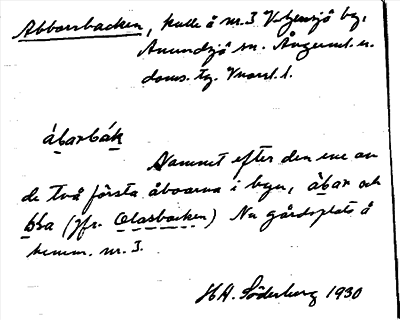 Abborrbacken, kulle å nr. 3 V. by,
Anundsjö sn. Ångerml. n.
doms. tg. Vnorrl. l.
ábarbák
Namnet efter den ene av
de två första åboarna i byn, àbar och
(jfr. Olasbacken) Nu gårdsplats å
hemm. nr. 3.
H.H. Söderberg 1930